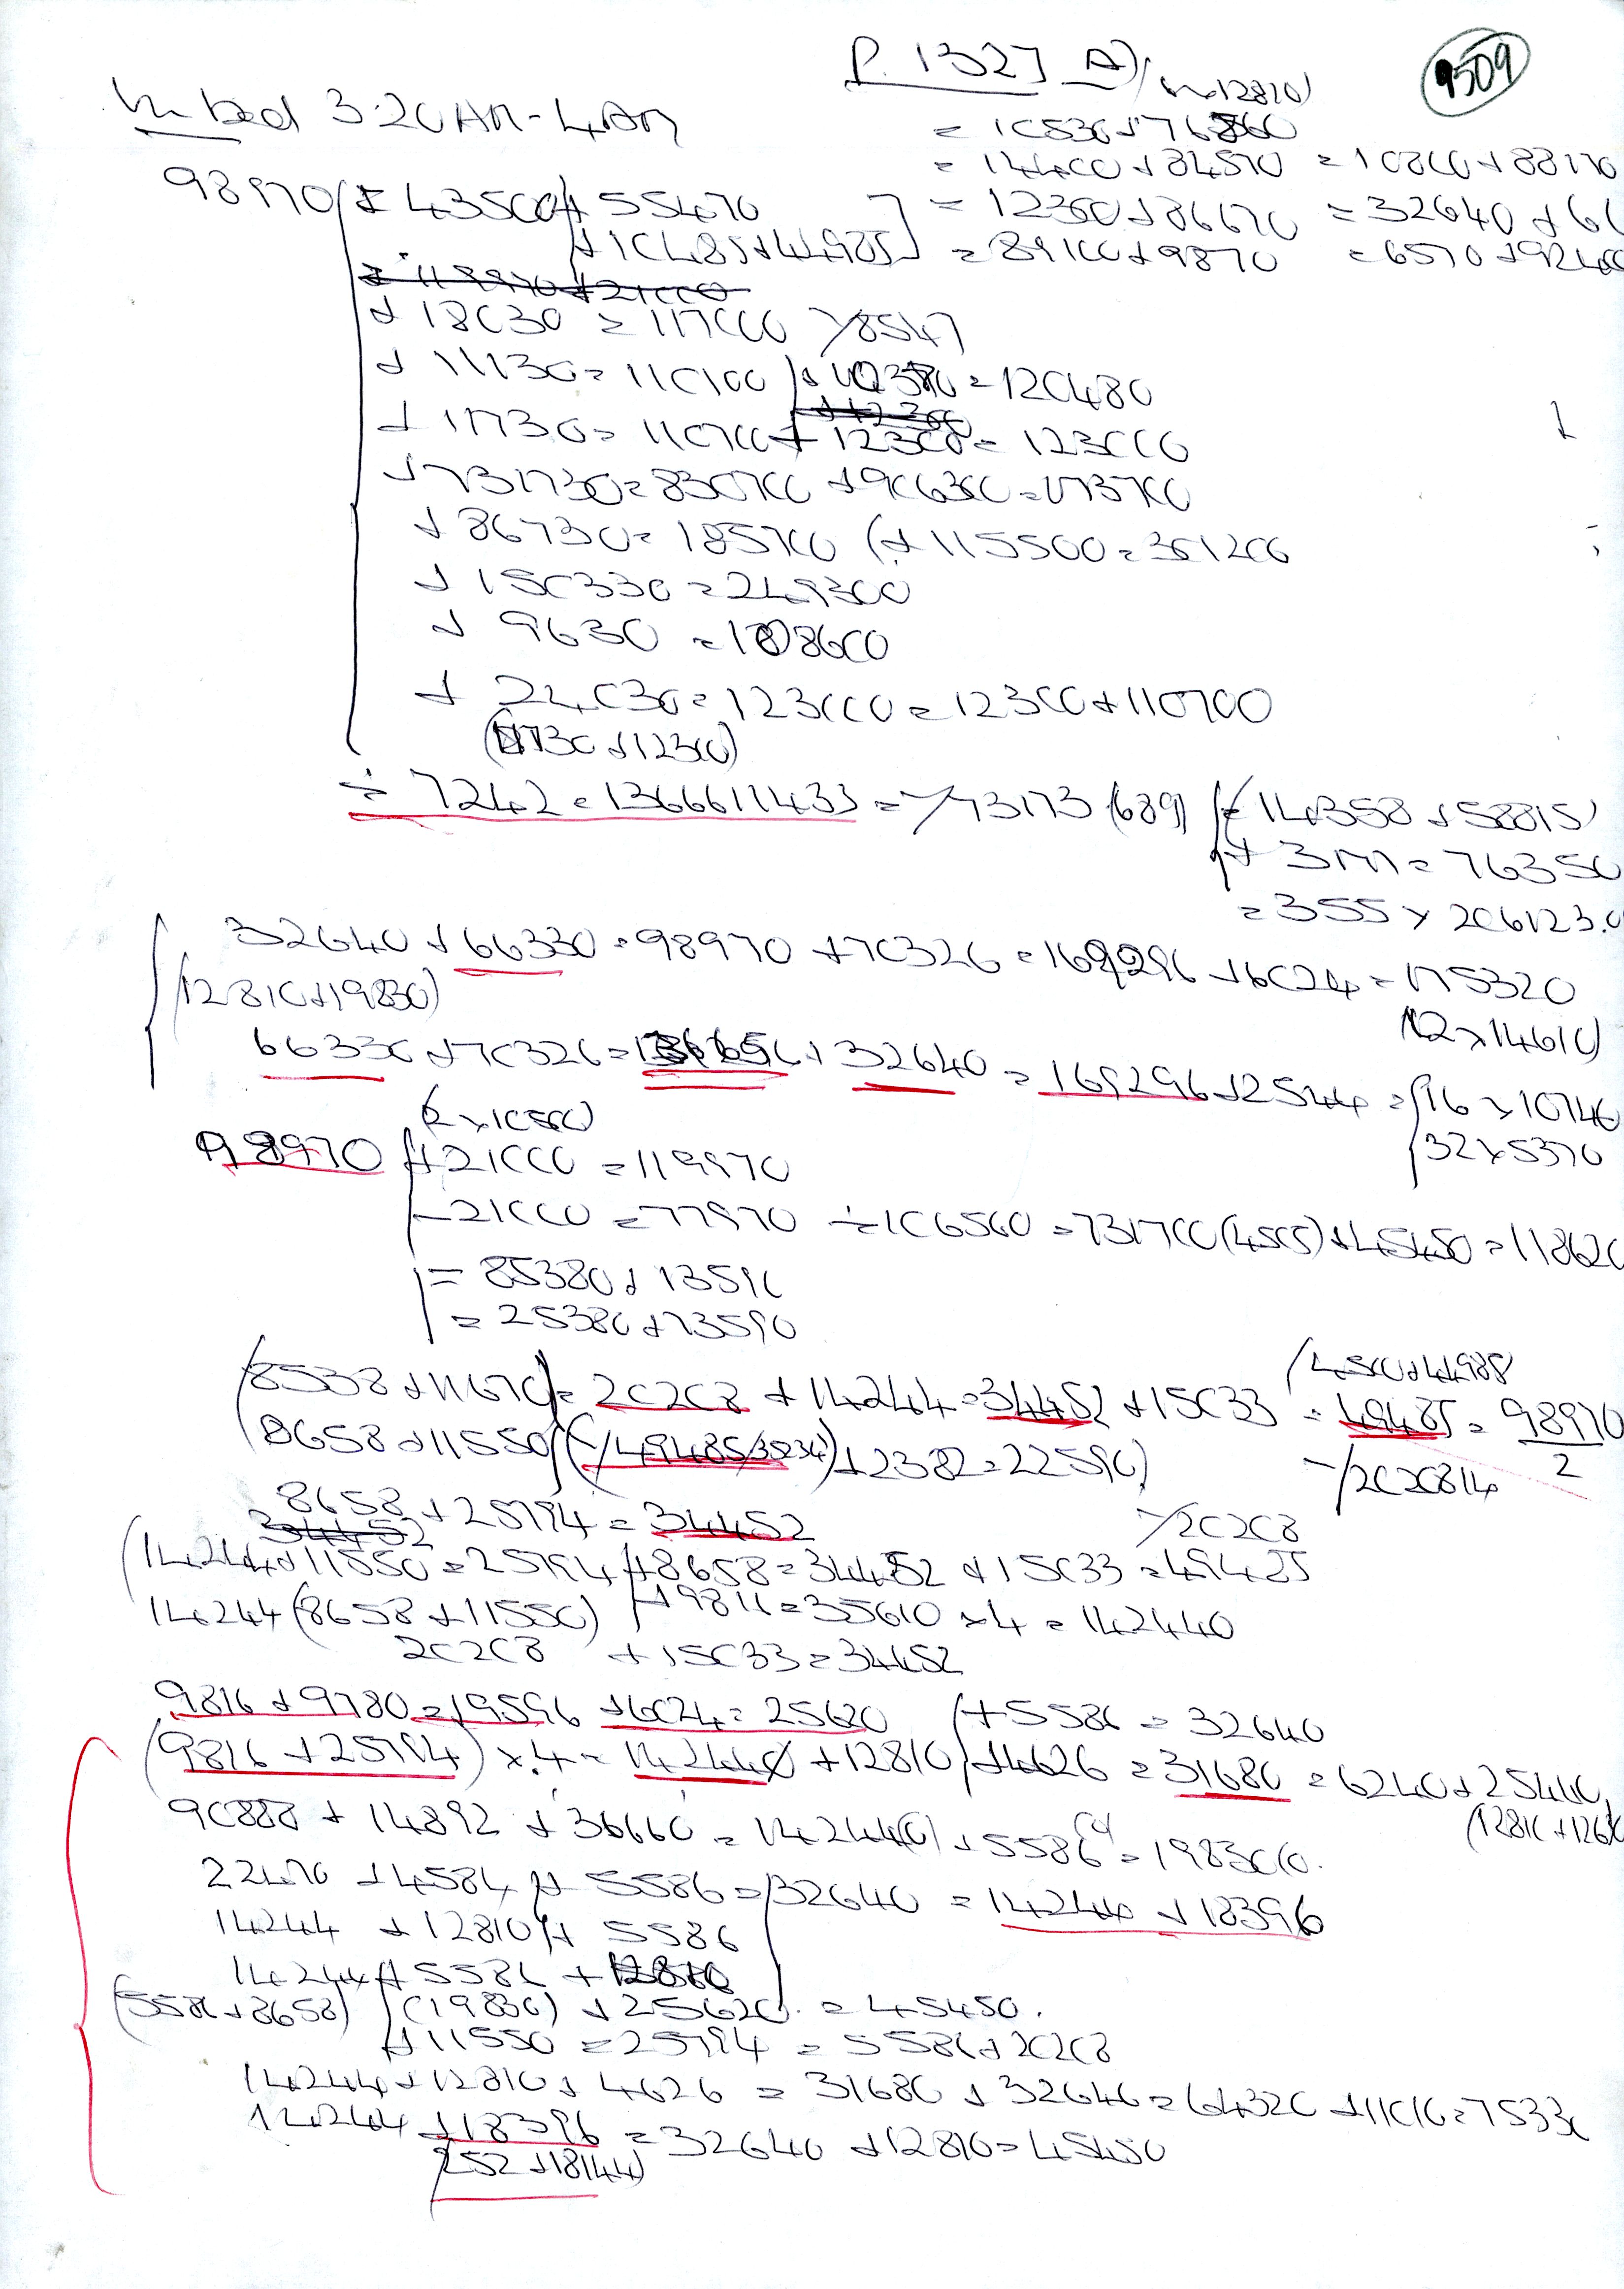 P. 1327 A)
9509
In bed 3.20AM-4AM
98970 = 43500 + 55470
+ 10485 + 44985
= 14400 + 84570 = 10800 + 88170
= 12300 + 86670 = 32640 + 66
= 89100 + 9870 = 6570 + 92400
+ 18030 = 117000 /8547
+ 11130 = 110100
= 120480
+ 11730 = 110700 + 12300 = 123000
+ 86730 = 185700 (+ 115500 = 301200
+ 150330 = 249300
+ 9630 = 108600
+ 24030 = 123000 = 12300 + 110700
(11730 + 12300)
÷ 7242 = 1366611433 = /73173 (689) (= 14358 + 58815)
+ 3177 = 76350
= 355 × 206123.0
32640 + 66330 = 98970 + 70326 = 169296 + 6024 = 175320
(12810 + 19830)
(12 × 14610)
66330 + 70326 = 136656 + 32640 = 169296 + 2544 = (16 × 10740
(2 × 10500)
32 × 5370
98970 + 21000 = 119970
- 21000 = 77970 ÷ 106560 = 731700 (4505) + 45450 = 11862
= 85380 + 13590
= 25380 + 73590
(8538 + 11670) = 20208 + 14244 = 34452 + 15033 = 49485 = 98970
2
(4500 + 44985
(8658 + 11550) + 2382 = 22590)
/2020814
8658 + 25794 = 34452
/20208
(14244 + 11550 = 25794 + 8658 = 34452 + 15033 = 49485
14244 (8658 + 11550) + 9816 = 35610 × 4 = 142440
20208 + 15033 = 34452
9816 + 9780 = 19596 + 6024 = 25620 (+ 5586 = 32640
(9816 + 25794) × 4 = 142440 + 12810 + 4626 = 31680 = 6240 + 25440
90888 + 14892 + 36660 = 14244(0) + 5586(0) = 198300
22470 + 4584 + 5586 = 32640 = 14244 + 18396
14244 + 12810 + 5586
14244 + 5586 + 12810
(5586 + 8658) (19830) + 25620 = 45450.
+ 11550 = 25794 = 5586 + 20208
14244 + 12810 + 4626 = 31680 + 32640 = 64320 + 11010 = 75330
14244 + 18396 = 32640 + 12810 = 45450
(252 + 18144)